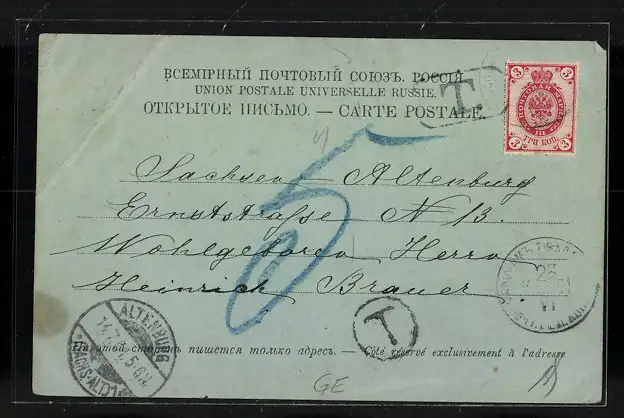 ВСЕМІРНЫЙ ПОЧТОВЫЙ СОЮЗЪ. РОССІЯ
UNION POSTALE UNIVERSELLE RUSSIE.
ОТКРЫТОЕ ПИСЬМО. — CARTE POSTALE.
T.
3 3
ПОЧТОВАЯ МАРКА
ТРИ КОП.
5
Sachsen Altenburg
Ernststrasse N 13.
Wohlgeboren Herrn
Heinrich Brauer
25
VI
ALTENBURG
T
На этой сторонѣ пишется только адресъ. — Côté réservé exclusivement à l'adresse
GE